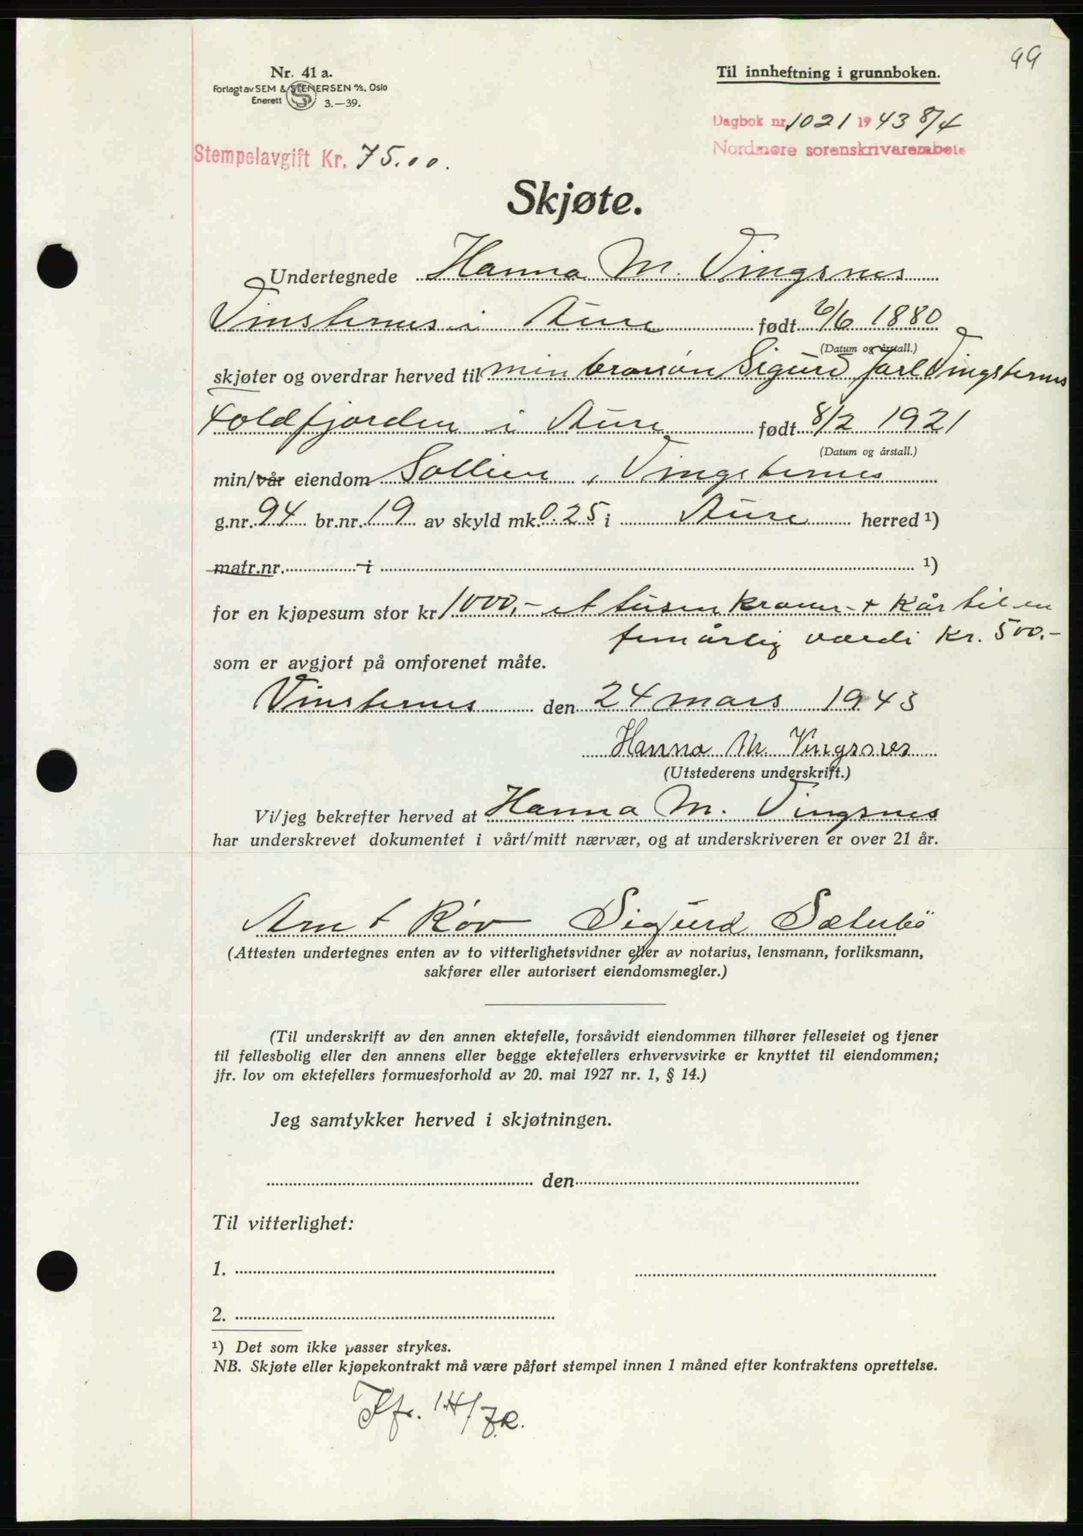 99
Nr. 41 a.
Forlagt av SEM & STENERSEN A/S, Oslo
Enerett 3.—39.
Til innheftning i grunnboken.
Dagbok nr. 1021 1943 8/4
Nordmøre sorenskriverembete
Stempelavgift Kr. 75.00.
Skjøte.
Undertegnede Hanna M. Vingsnes
Vinsternes i Aure født 6/6 1880
(Datum og årstall.)
skjøter og overdrar herved til min brorsøn Sigurd Jarl Vingsternes
Foldfjorden i Aure født 8/2 1921
(Datum og årstall.)
min/vår eiendom Sollien, Vingsternes
g.nr. 94 br.nr. 19 av skyld mk. 0.25 i Aure herred ¹)
matr.nr. i ¹)
for en kjøpesum stor kr. 1000,- et tusen kroner + kår til en
femårlig værdi kr. 500.-
som er avgjort på omforenet måte.
Vinsternes den 24 mars 1943
Hanna M. Vingsnes
(Utstederens underskrift.)
Vi/jeg bekrefter herved at Hanna M. Vingsnes
har underskrevet dokumentet i vårt/mitt nærvær, og at underskriveren er over 21 år.
Arnt Røv Sigurd Sæterbö
(Attesten undertegnes enten av to vitterlighetsvidner eller av notarius, lensmann, forliksmann,
sakfører eller autorisert eiendomsmegler.)
(Til underskrift av den annen ektefelle, forsåvidt eiendommen tilhører felleseiet og tjener
til fellesbolig eller den annens eller begge ektefellers erhvervsvirke er knyttet til eiendommen;
jfr. lov om ektefellers formuesforhold av 20. mai 1927 nr. 1, § 14.)
Jeg samtykker herved i skjøtningen.
den
Til vitterlighet:
1.
2.
¹) Det som ikke passer strykes.
NB. Skjøte eller kjøpekontrakt må være påført stempel innen 1 måned efter kontraktens oprettelse.